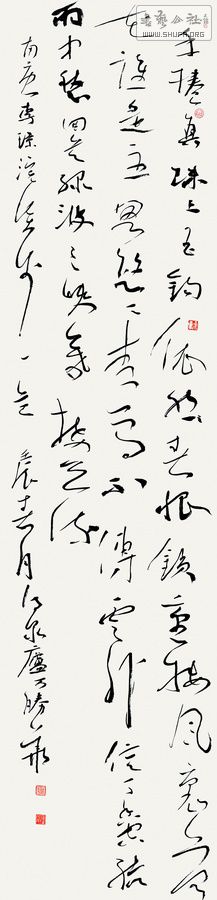 手捲真珠上玉鉤依前春恨鎖重樓風裏落
花誰是主思悠悠青鳥不傳雲外信丁香空結
雨中愁回首綠波三峽暮接天流
南唐李璟浣溪沙一首 辰春月
書藝公社
www.SHUFA.ORG